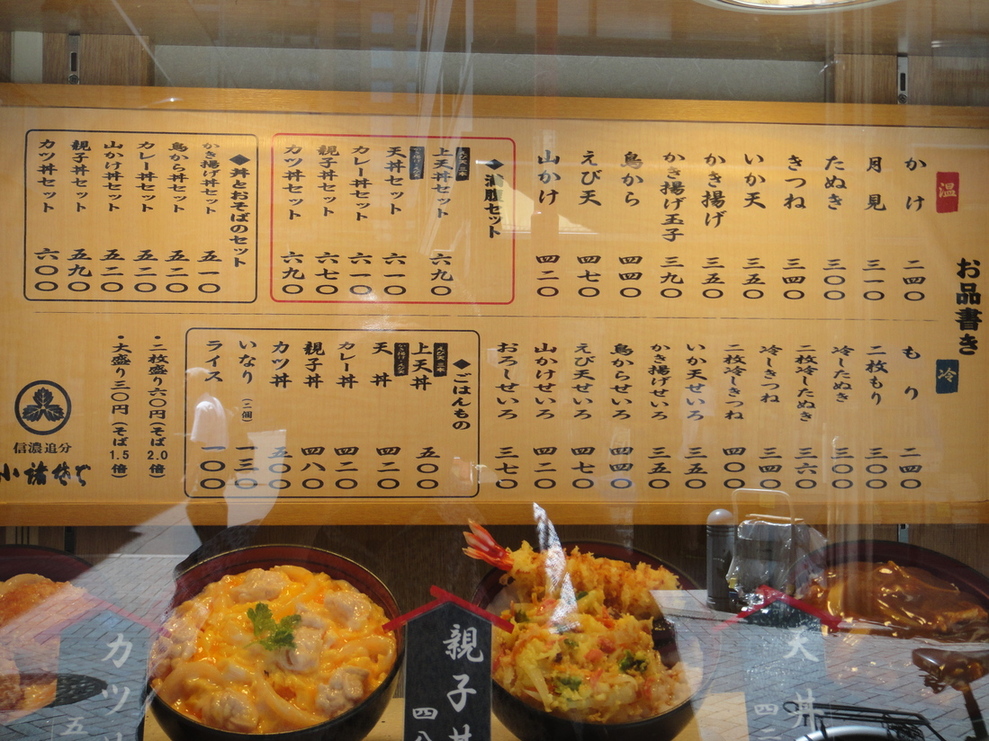 お品書き
温
かけ 二四〇
月見 三一〇
たぬき 三〇〇
きつね 三四〇
いか天 三五〇
かき揚げ 三五〇
かき揚げ玉子 三九〇
鳥から 四四〇
えび天 四七〇
山かけ 四二〇
◆満腹セット
上天丼セット 六九〇
天丼セット 六一〇
カレー丼セット 六一〇
親子丼セット 六七〇
カツ丼セット 六九〇
◆丼とおそばのセット
かき揚げ丼セット 五一〇
鳥から丼セット 五二〇
カレー丼セット 五二〇
山かけ丼セット 五二〇
親子丼セット 五九〇
カツ丼セット 六〇〇
冷
もり 二四〇
二枚もり 三〇〇
冷したぬき 三〇〇
二枚冷したぬき 三六〇
冷しきつね 三四〇
二枚冷しきつね 四〇〇
いか天せいろ 三五〇
かき揚げせいろ 三五〇
鳥からせいろ 四四〇
えび天せいろ 四七〇
山かけせいろ 四二〇
おろしせいろ 三七〇
◆ごはんもの
上天丼 五〇〇
天丼 四二〇
カレー丼 四二〇
親子丼 四八〇
カツ丼 五〇〇
いなり(二個) 一三〇
ライス 一〇〇
・二枚盛り六〇円(そば2.0倍)
・大盛り三〇円(そば1.5倍)
信濃追分
小諸そば
天丼
四二
親子丼
四八
カツ
五